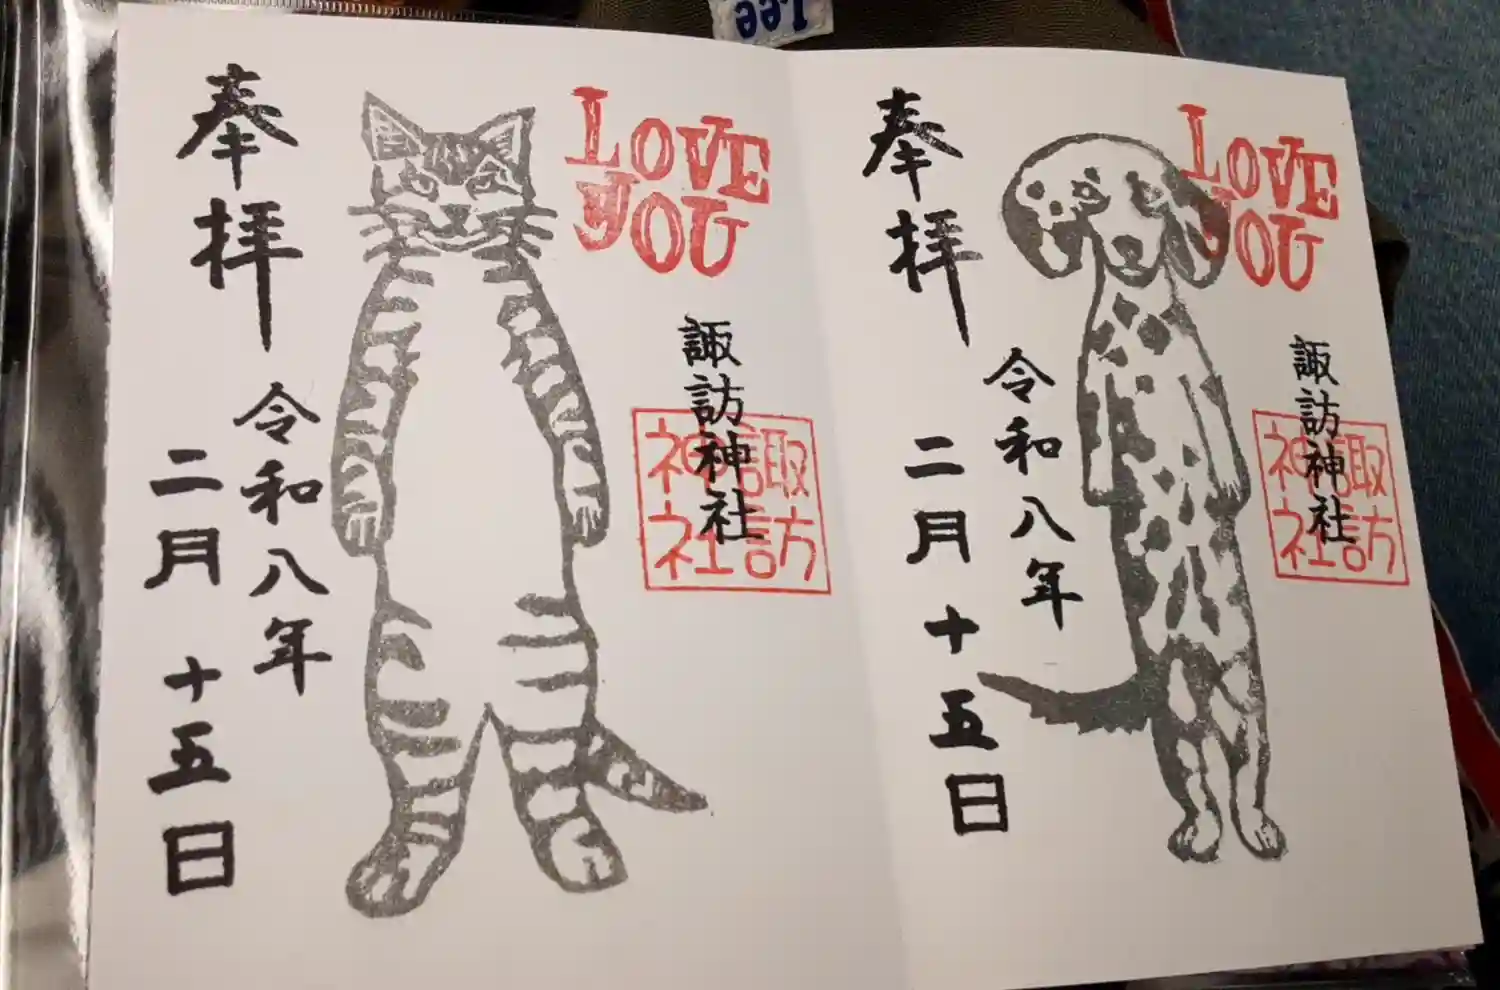 Lee
奉拝
LOVE
YOU
諏訪神社
諏訪
神社
令和八年
二月十五日
奉拝
LOVE
YOU
諏訪神社
諏訪
神社
令和八年
二月十五日